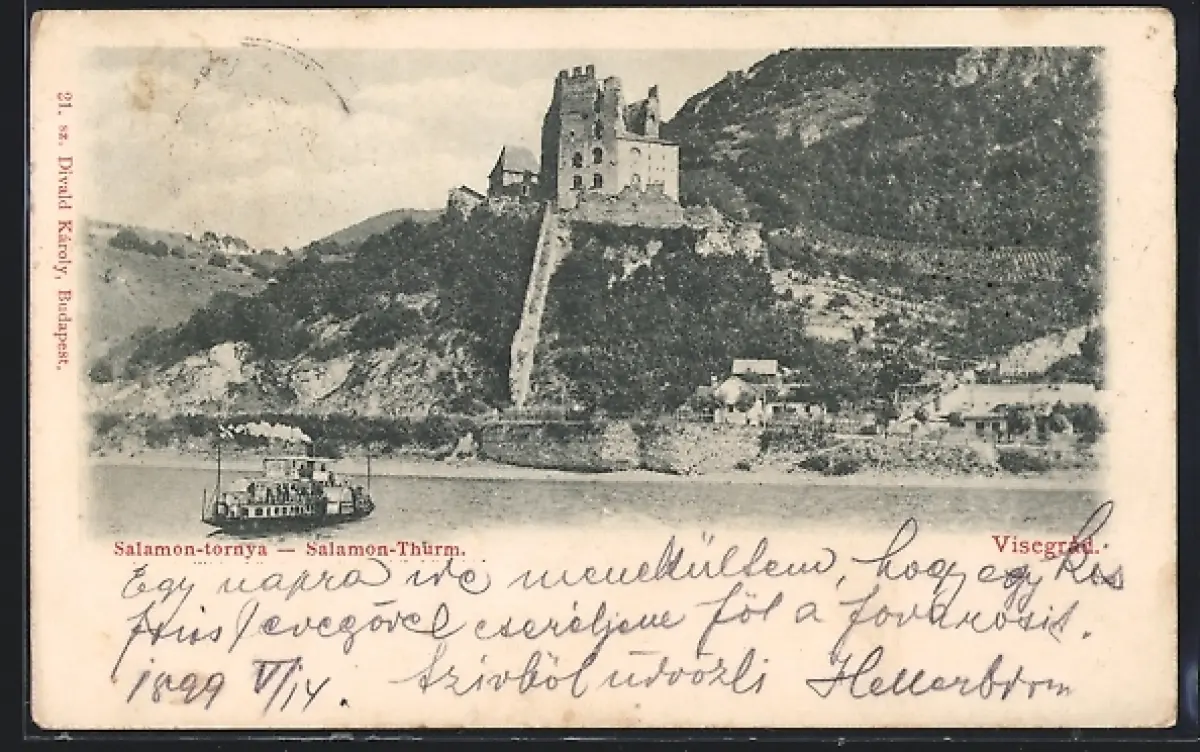 21. sz. Divald Károly, Budapest.
Salamon-tornya — Salamon-Thurm.
Visegrád.
Egy napra ide menekültem, hogy egy kis
friss levegővel cseréljem föl a fővárosit.
1899 V/14. Szívből üdvözli